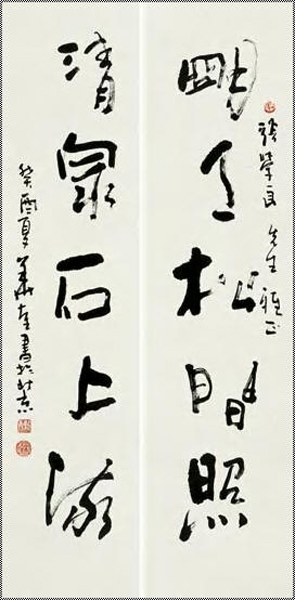 張學良先生雅正
明月松間照
清泉石上流
癸酉夏書於北京